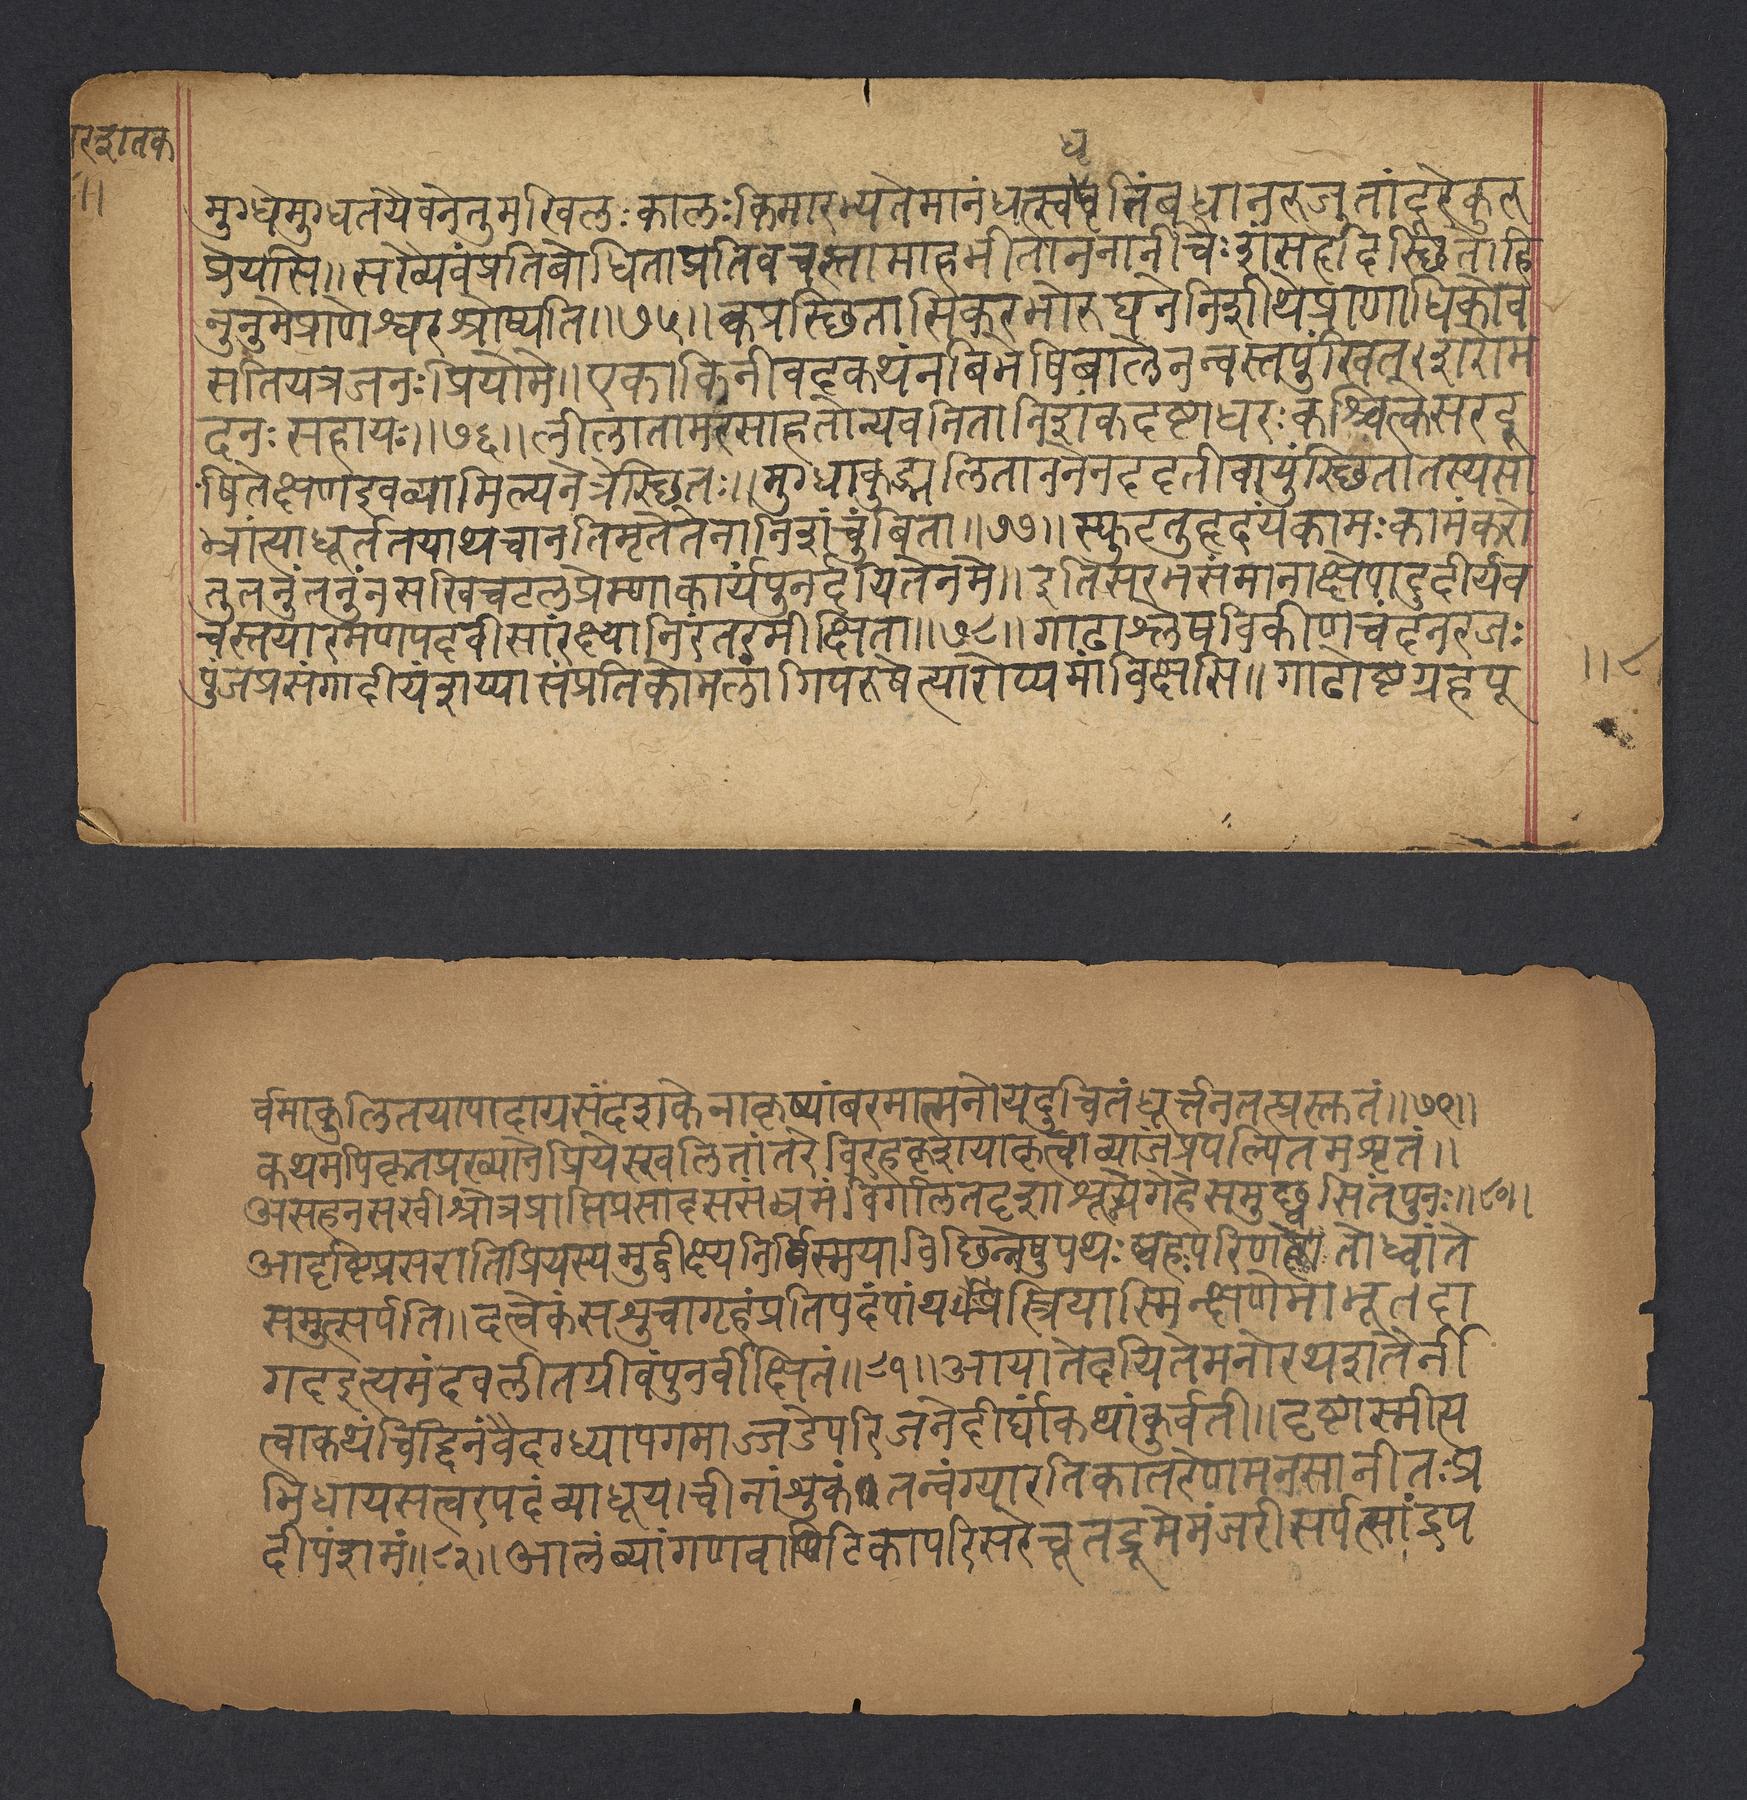 रशतक
॥
धृ
मुग्धेमुग्धतयैवनेतुमखिलःकालःकिमारभ्यतेमानंधत्स्वधृतिंबधानऋजुतांदूरेकुरु
प्रेयसि॥सख्यैवंप्रतिबोधिताप्रतिवचस्तामाहभीताननानीचैःशंसहृदिस्छितोहि
नुनुमेप्राणेश्वरःश्रोष्यति॥७५॥क्वप्रस्छितासिकरभोरुघनेनिशीथेप्राणाधिकोव
सतियत्रजनःप्रियोमे॥एकाकिनीवदकथंनबिभेषिबालेनन्वस्तपुंखितशरोम
दनःसहायः॥७६॥लीलातामरसाहतोन्यवनितानिशंकदष्टाधरःकश्चित्केसरदू
षितेक्षणइवव्यामिल्यनेत्रेस्छितः॥मुग्धाकुड्मलिताननेनददतीवायुंस्छितातस्यसा
भ्रांत्याधूर्ततयाथचानतिमृतेतेनानिशंचुंबिता॥७७॥स्फुटतुहृदयंकामःकामंकरो
तुतनुंतनुंनसखिचटलप्रेम्णाकार्यंपुनर्दयितेनमे॥इतिसरभसंमानाक्षेपादुदीर्यव
चस्तयारमणपदवीसारंक्ष्यानिरंतरमीक्षिता॥७८॥गाढाश्लेषविकीर्णचंदनरजः
पुंजप्रसंगादीयंशय्यासंप्रतिकोमलांगिपरुषेत्यारोप्यमांवक्षसि॥गाढोष्टग्रहपू
॥८
र्वमाकुलितयापादाग्रसंदंशकेनाकृष्यांबरमात्मनोयदुचितंधूर्त्तेनतत्प्रस्तुतं॥७९॥
कथमपिकृतप्रत्याख्यानेप्रियेस्खलितांतरेविरहकृशयाकृत्वाव्याजंप्रपल्पितमश्रृतं॥
असहनसखीश्रोत्रप्राप्तिप्रसादससंभ्रमंविगलितदृशाशून्येगेहेसमुछ्वसितंपुनः॥८०॥
आदृष्टिप्रसरात्प्रियस्यमुद्वीक्ष्यनिर्विस्मयाविछिन्नेषुपथःस्वहःपरिणतौध्वांते
समुत्सर्पति॥दत्वैकंसशुचागृहंप्रतिपदंपांथस्त्रियास्मिन्क्षणेमाभूतदा
गदइत्यमंदवलीतग्रीवंपुनर्वीक्षितं॥८१॥आयातेदयितेमनोरथशतैर्नी
त्वाकथंचिद्दिनंवैदग्ध्यापगमाज्जडेपरिजनेदीर्घांकथांकुर्वती॥दष्टास्मीत्य
भिधायसत्वरपदंव्याधूयचीनांशुकंतन्वंग्यारतिकातरेणमनसानीतःप्र
दीपंशमं॥८२॥आलंव्यांगणवाटिकापरिसरेचूतद्रुमेमंजरीसर्पत्सांद्रप